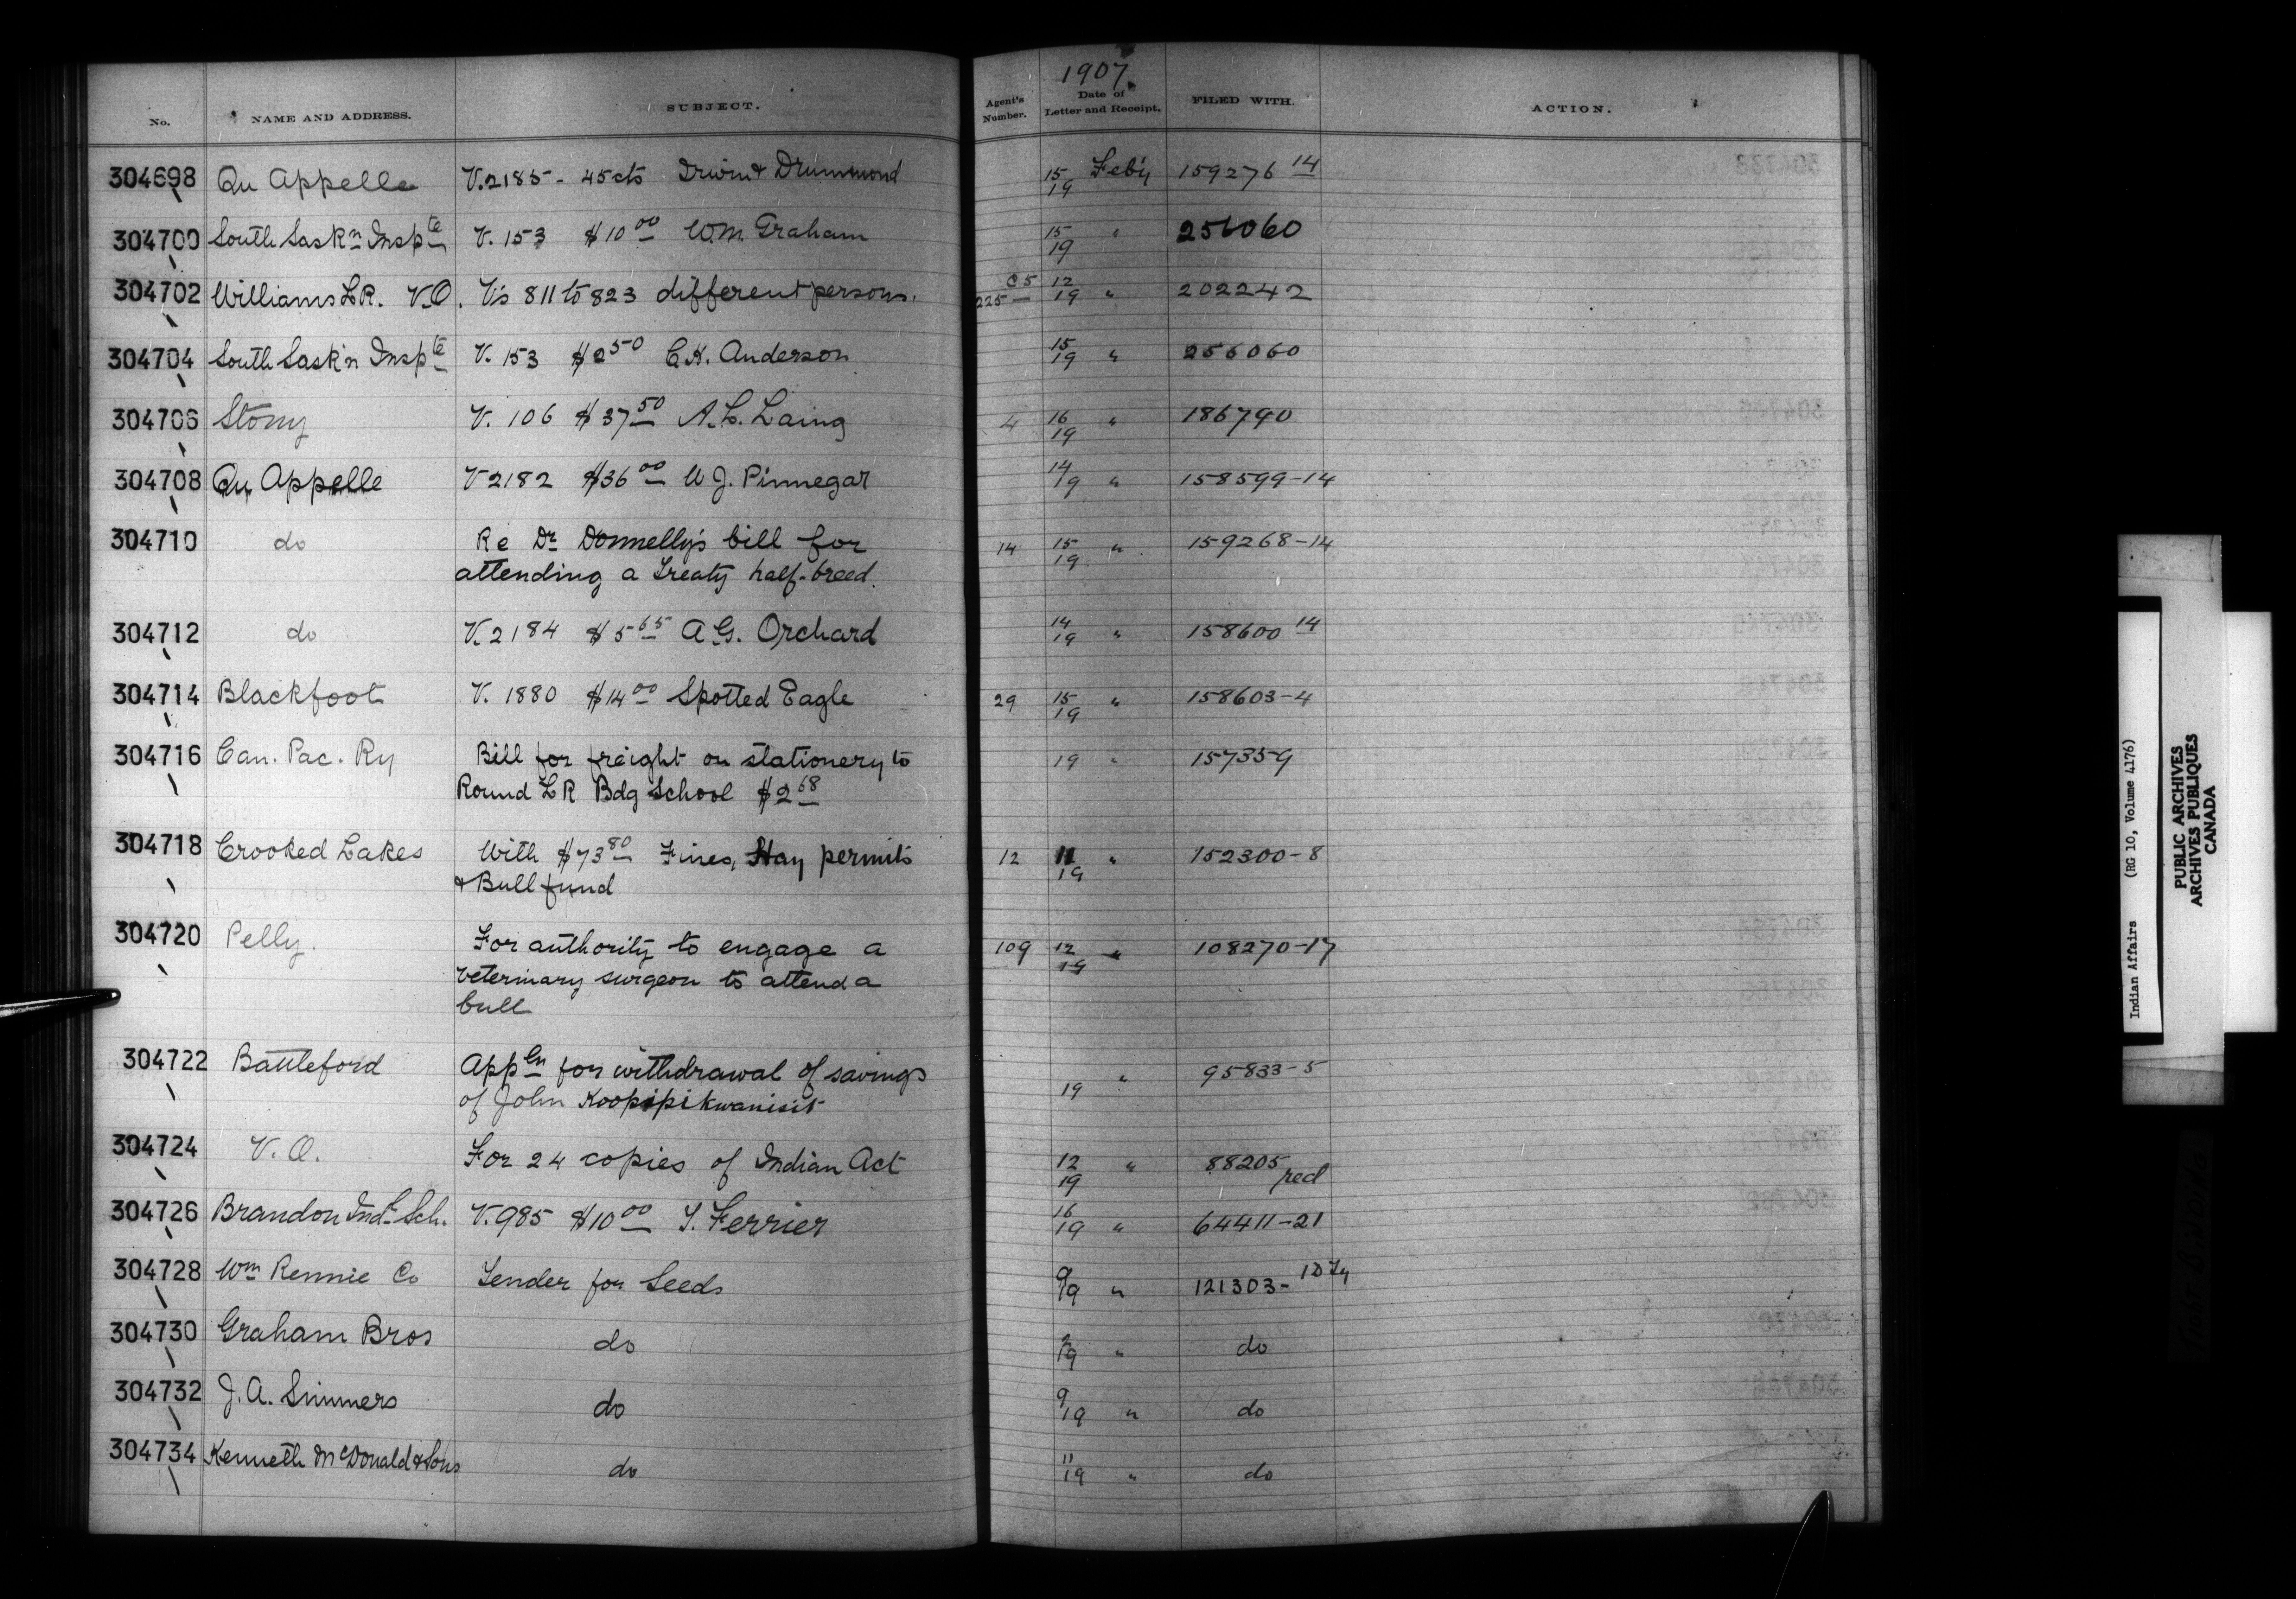 1907
No. NAME AND ADDRESS. SUBJECT. Agent's Number. Date of Letter and Receipt. FILED WITH. ACTION.
304698 Qu Appelle V. 2185 - 45 cts Irwin & Drummond 15/19 Feb'y 159276 14
304700 South Sask n Insp te V. 153 $10 00 W.M. Graham 15/19 " 256060
304702 Williams L.R. V.O. V's 811 to 823 different persons. C5 225 12/19 " 202242
304704 South Sask'n Insp te V. 153 $2 50 C.K. Anderson 15/19 " 256060
304706 Stony V. 106 $37 50 A.L. Laing 4 16/19 " 186790
304708 Qu Appelle V 2182 $36 00 W J. Pinnegar 14/19 " 158599-14
304710 do Re Dr Donnelly's bill for 14 15/19 " 159268-14
attending a Treaty half-breed.
304712 do V. 2184 $5 65 A G. Orchard 14/19 " 158600 14
304714 Blackfoot V. 1880 $14 00 Spotted Eagle 29 15/19 " 158603-4
304716 Can. Pac. Ry Bill for freight on stationery to 19 " 157359
Round LR Bdg School $2 68
304718 Crooked Lakes With $73 80 Fines, Hay permits 12 11/19 " 152300-8
& Bull fund
304720 Pelly. For authority to engage a 109 12/19 " 108270-17
veterinary surgeon to attend a
bull
304722 Battleford App ln for withdrawal of savings 19 " 95833-5
of John Koopipikwanisit
304724 V.O. For 24 copies of Indian Act 12/19 " 88205 red
304726 Brandon Ind l Sch. V. 985 $10 00 T. Ferrier 16/19 " 64411-21
304728 Wm Rennie Co Tender for Seeds 9/19 " 121303-
304730 Graham Bros do 9/19 " do
304732 J.A. Simmers do 9/19 " do
304734 Kenneth McDonald & Sons do 11/19 " do
Indian Affairs (RG 10, Volume 4176)
PUBLIC ARCHIVES
ARCHIVES PUBLIQUES
CANADA